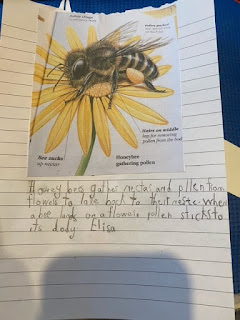 Pollen packed
Hairs on middle
legs for removing
pollen from the bod
Bee sucks
up nectar
Honeybee
gathering pollen
Honey bees gather nectar and pllen from
flowers to take back to their neste. When
a bee lands on a flower pollen sticks to
its body Elisa